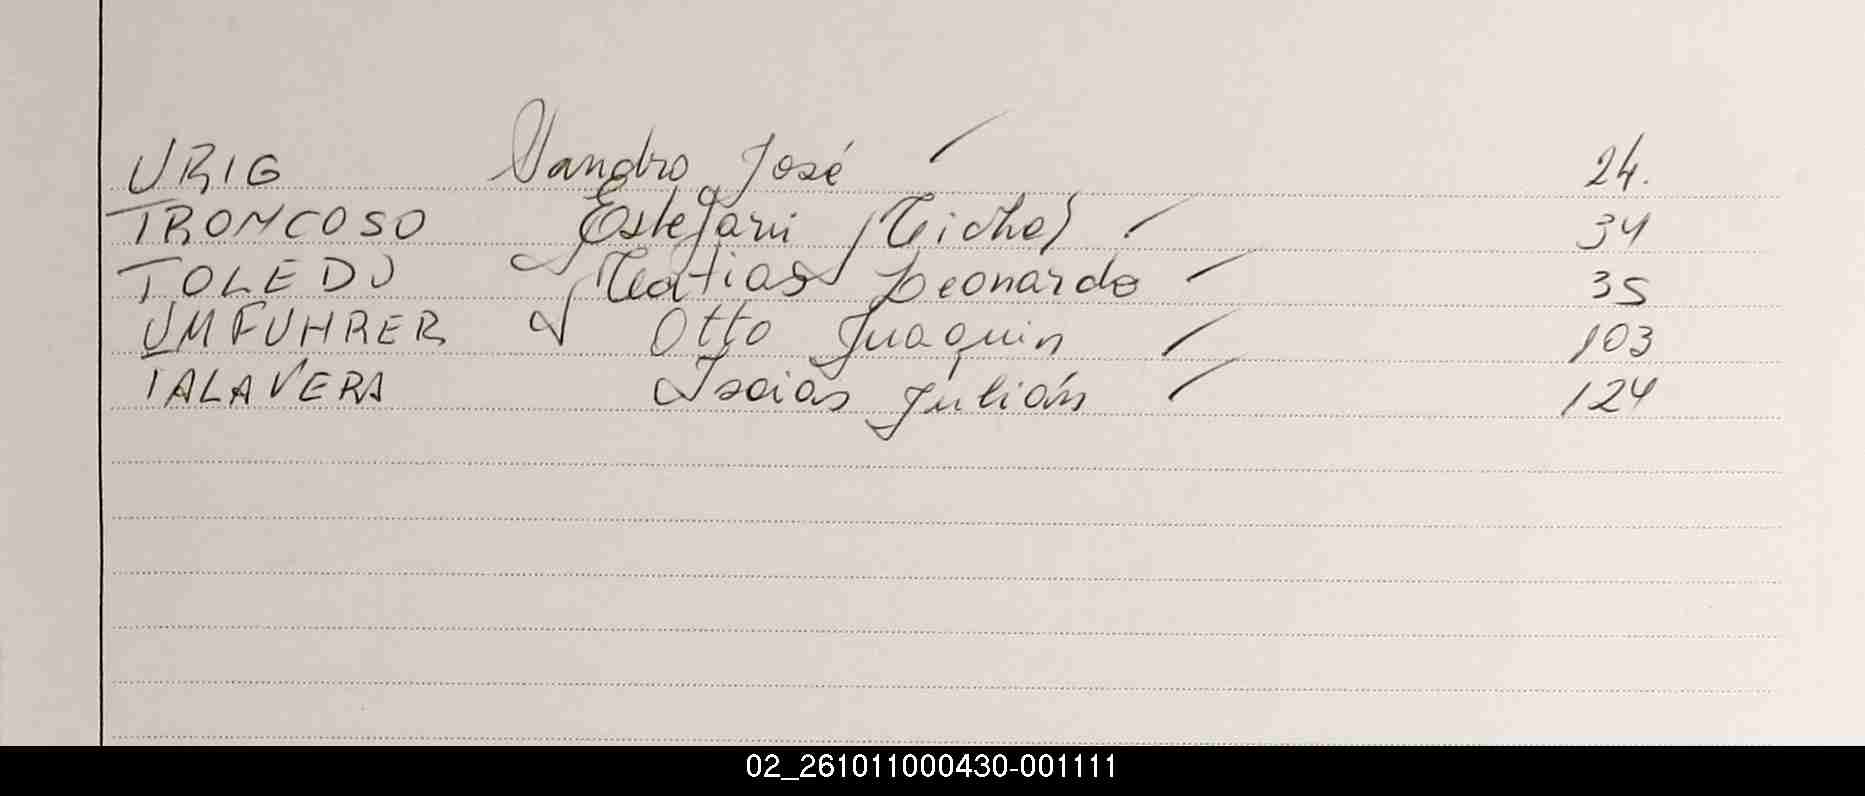 URIG Vandro José 24.
TRONCOSO Estefani Michel 34
TOLEDO Matias Leonardo 35
UMFUHRER Otto Juaquin 103
TALAVERA Isaias Julián 124
02_261011000430-001111